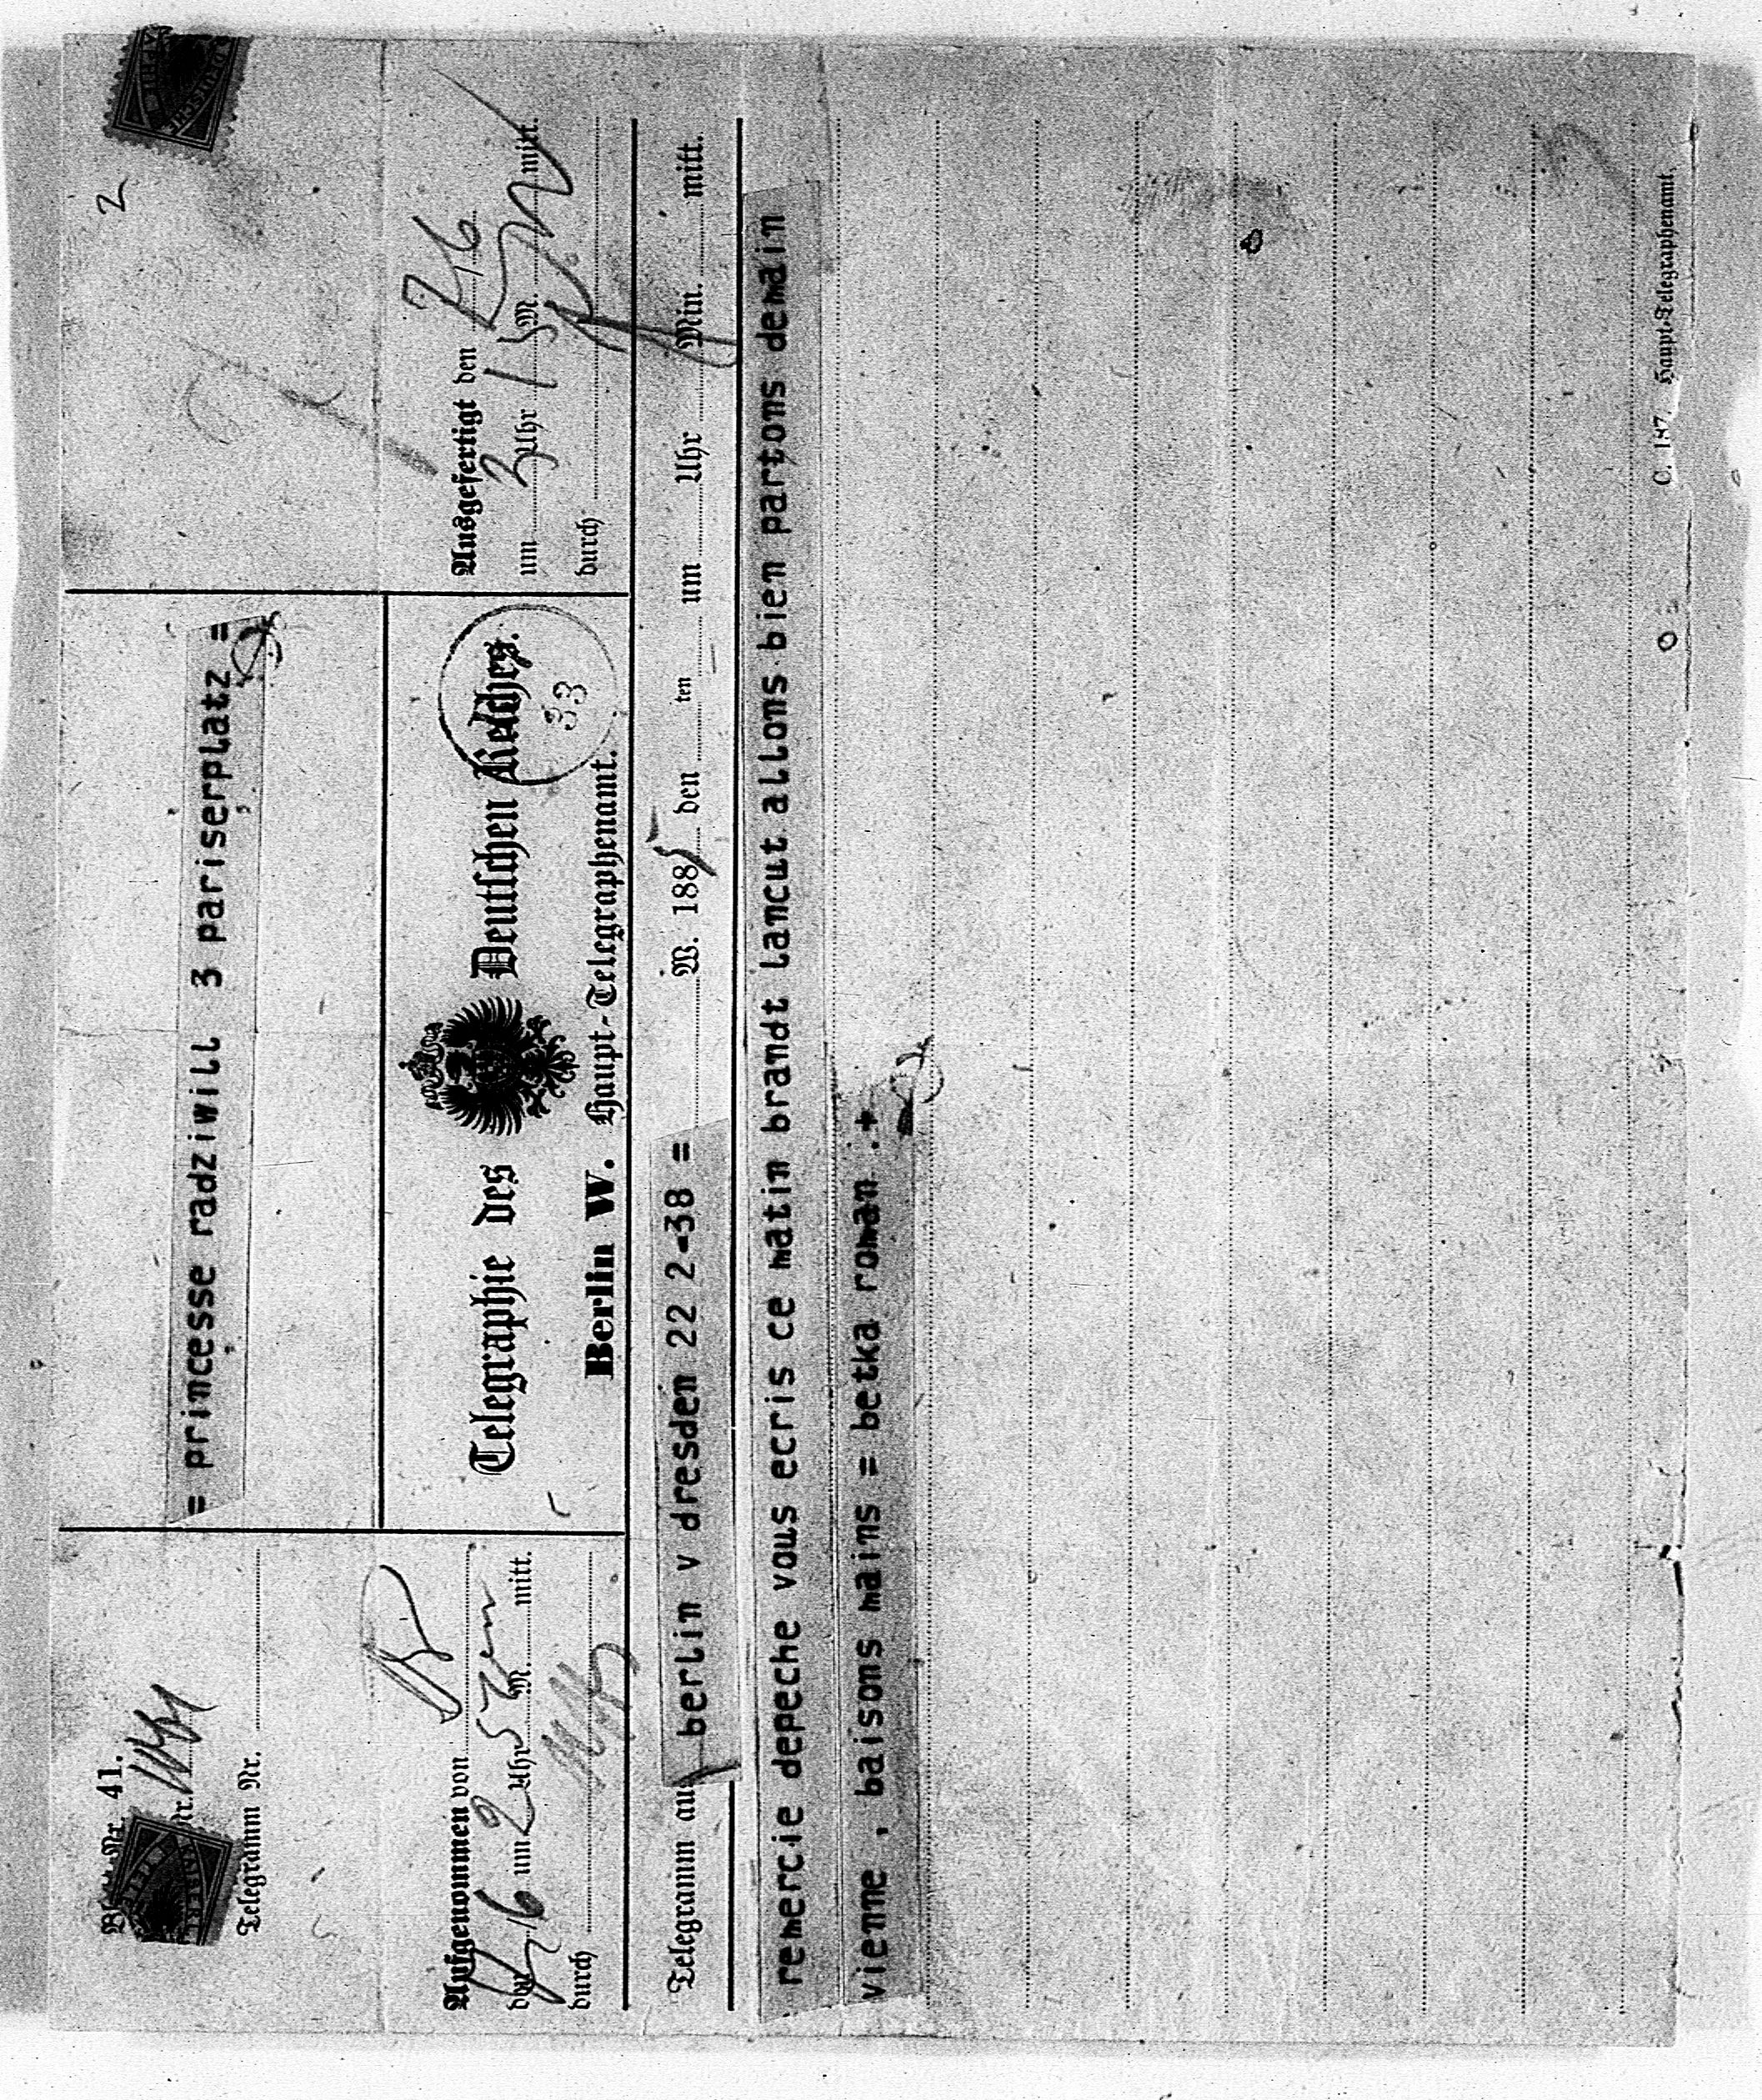 Nr. 41.
Nr.
Telegramm Nr.
= princesse radziwill 3 pariserplatz =
2
Aufgenommen von
den 7/6 um 2 Uhr 52 M. mitt.
durch
Telegraphie des Deutschen Reiches.
Berlin W. Haupt-Telegraphenamt.
33
Ausgefertigt den 7/6
um 3 Uhr 15 M. mitt.
durch
Telegramm aus berlin v dresden 22 2-38 = W. 1885 den ten um Uhr Min. mitt.
remercie depeche vous ecris ce matin brandt lancut allons bien partons demain
vienne , baisons mains = betka roman .+
C. 187. Haupt-Telegraphenamt.